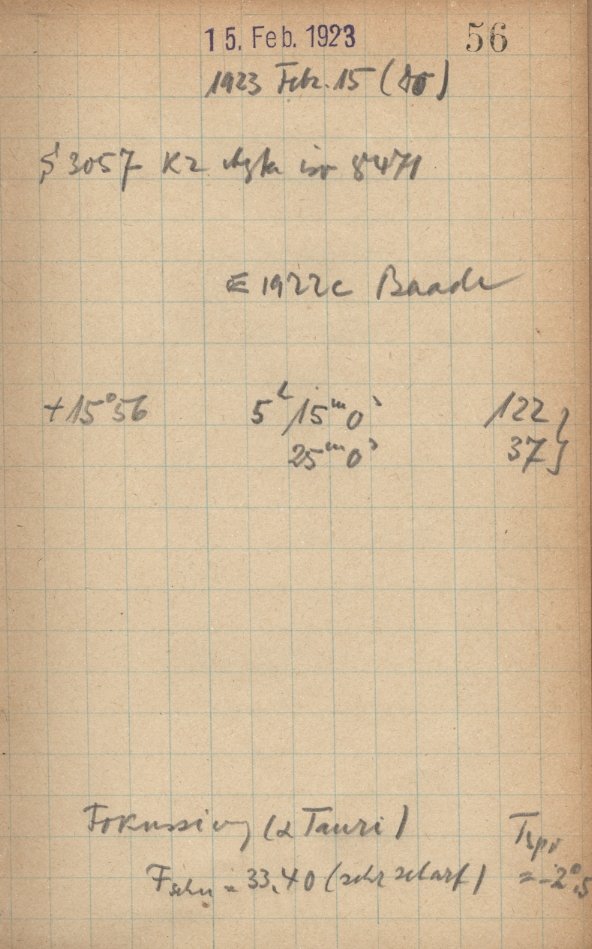 15. Feb. 1923 56
1923 Febr. 15 (Do)
S 3057 K2 Agfa iso 8471
1922c Baade
+15°56 5h 15m 0s 122 }
25m 0s 37 }
Fokussierung (α Tauri) Tspi
F = 33,40 (sehr scharf) = -2°,5